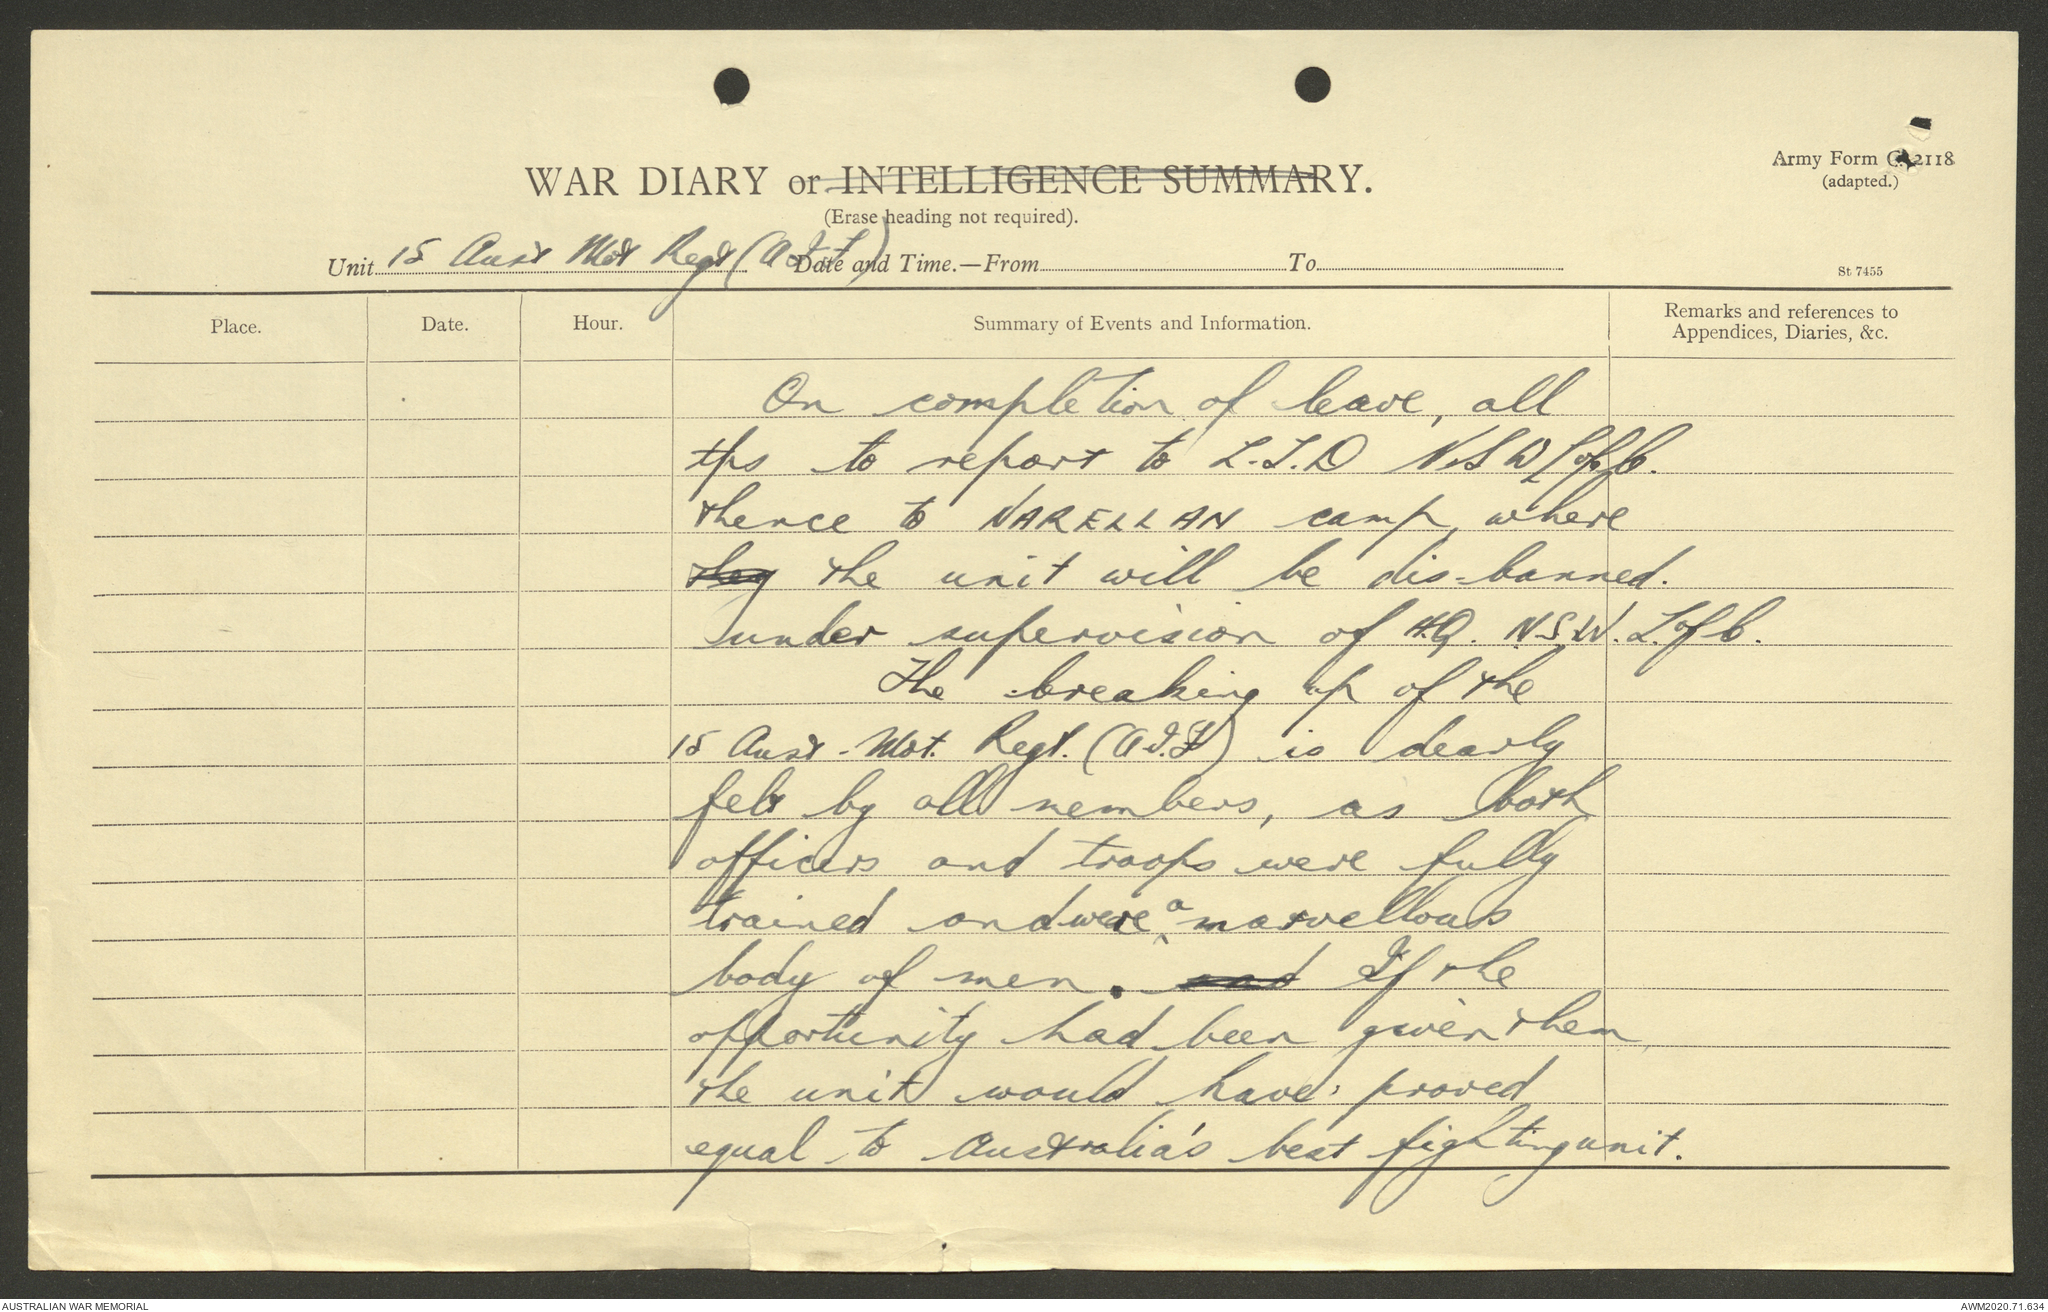 Army Form C. 2118
(adapted.)
WAR DIARY or INTELLIGENCE SUMMARY.
(Erase heading not required).
Unit 15 Aust Mot Regt (A.I.F) Date and Time.—From To
St 7455
Place. Date. Hour. Summary of Events and Information. Remarks and references to
Appendices, Diaries, &c.
On completion of leave, all
tps to report to L.T.D N.S.W L of C.
thence to NARELLAN camp, where
they the unit will be dis-banned.
under supervision of H.Q. N.S.W. L. of C.
The breaking up of the
15 Aust. Mot. Regt. (A.I.F) is dearly
felt by all members, as both
officers and troops were fully
trained and were a marvellous
body of men. and If the
opportunity had been given them,
the unit would have proved
equal to Australia's best fighting unit.
AUSTRALIAN WAR MEMORIAL
AWM2020.71.634